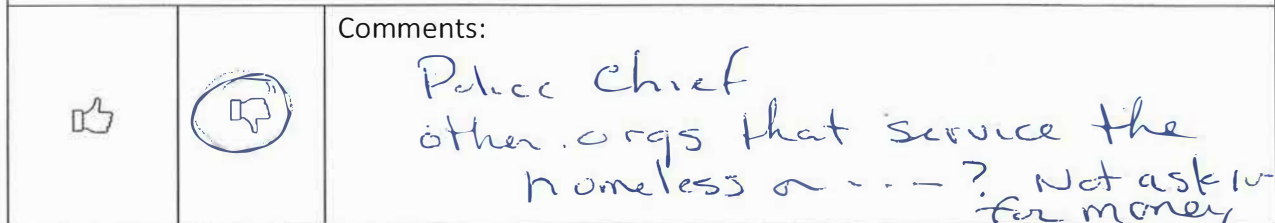 Comments:
Police Chief
other orgs that service the
homeless or - - - ? Not ask
for money